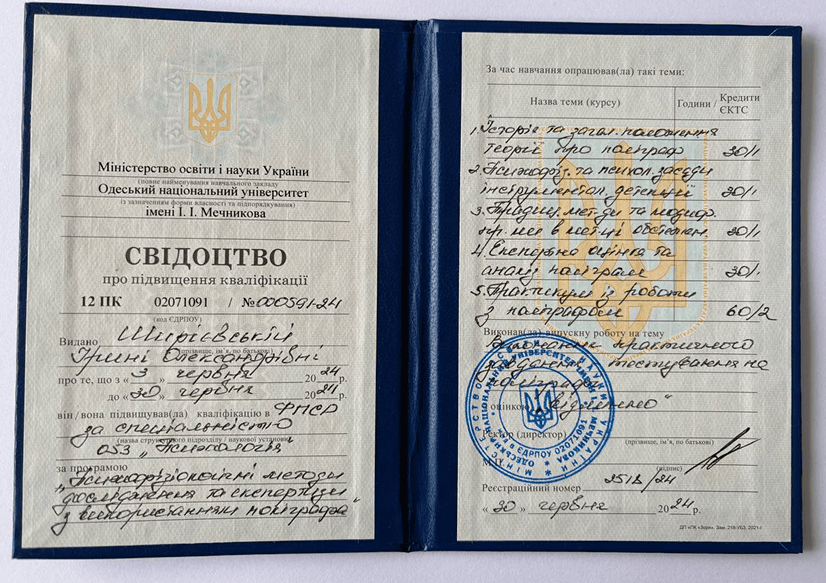 Міністерство освіти і науки України
(повне найменування навчального закладу
Одеський національний університет
із зазначенням форми власності та підпорядкування)
імені І. І. Мечникова
СВІДОЦТВО
про підвищення кваліфікації
12 ПК 02071091 / № 000591-24
(код ЄДРПОУ)
Видано Ширієвській
(прізвище, ім'я, по батькові)
Ірині Олександрівні
про те, що з « 3 » червня 2024 р.
до « 30 » червня 2024 р.
він / вона підвищував(ла) кваліфікацію в ФПСР
за спеціальністю
(назва структурного підрозділу / наукової установи)
053 „Психологія"
за програмою
„Психофізіологічні методи
дослідження та експертизи
з використанням поліграфа"
За час навчання опрацював(ла) такі теми:
Назва теми (курсу) Години / Кредити ЄКТС
1. Історія та загал. положення
теорії про поліграф 30/1
2. Психофіз. та психол. засади
інструментал. детекції 30/1
3. Традиц. методи та модиф.
в методі обстежен. 30/1
4. Експертна оцінка та
аналіз поліграм 30/1
5. Практикум із роботи
з поліграфом 60/2
Виконав(ла) випускну роботу на тему
Виконання практичного
завдання тестування на
поліграфі
з оцінкою „відмінно"
Ректор (директор)
(прізвище, ім'я, по батькові)
М.П.
(підпис)
Реєстраційний номер 2518/24
« 30 » червня 2024 р.
ДП «ПК «Зоря». Зам. 218-УБЗ. 2021-г
МІНІСТЕРСТВО ОСВІТИ І НАУКИ УКРАЇНИ
ОДЕСЬКИЙ НАЦІОНАЛЬНИЙ УНІВЕРСИТЕТ ІМЕНІ І. І. МЕЧНИКОВА
код в ЄДРПОУ 02071091